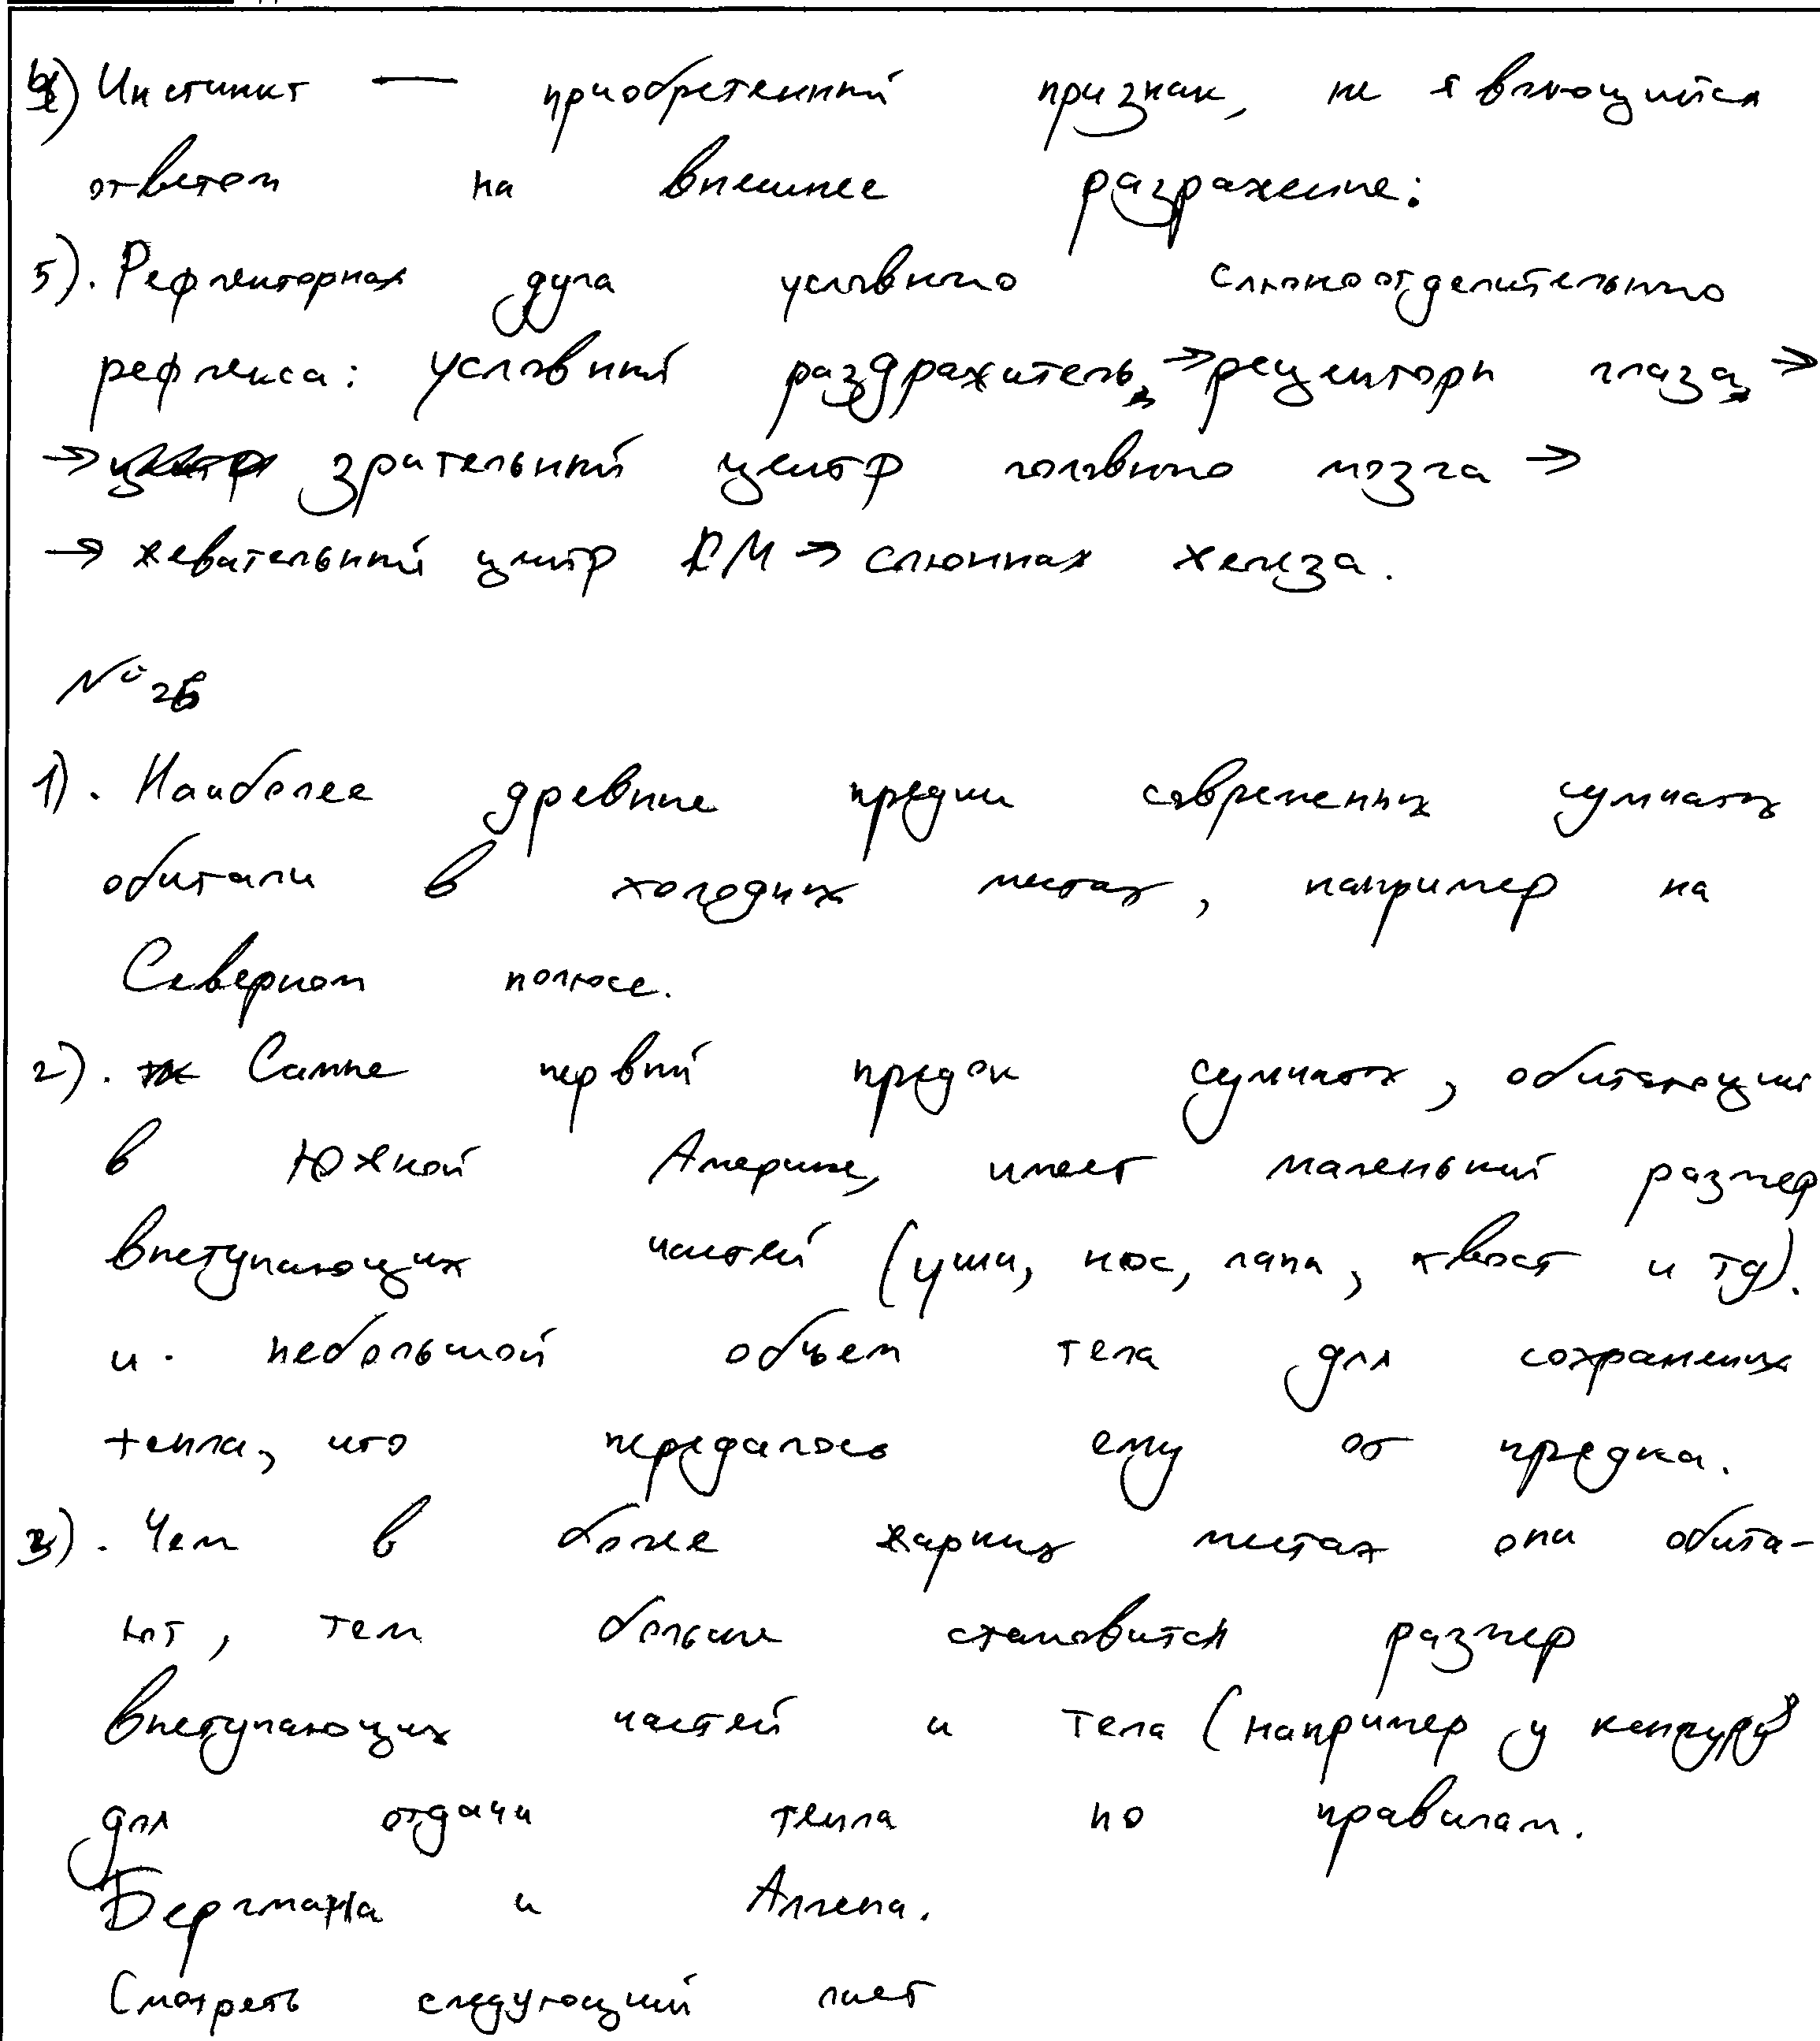 4) Инстинкт — приобретенный признак, не являющийся
ответом на внешнее разражение.
5). Рефлекторная дуга условного слюноотделительного
рефлекса: условный раздражитель → рецепторы глаза →
→ зрительный центр головного мозга →
→ жевательный центр ГМ → слюнная железа.
№ 26
1). Наиболее древние предки современных сумчатых
обитали в холодных местах, например на
Северном полюсе.
2). Самые первый предок сумчатых, обитающий
в Южной Америке, имеет маленький размер
выступающих частей (уши, нос, лапы, хвост и тд).
и небольшой объем тела для сохранения
тепла, что передалось ему от предка.
3). Чем в более жарких местах они обита-
ют, тем больше становится размер
выступающих частей и тела (например у кенгуру)
для отдачи тепла по правилам.
Бергмана и Аллена.
Смотреть следующий лист